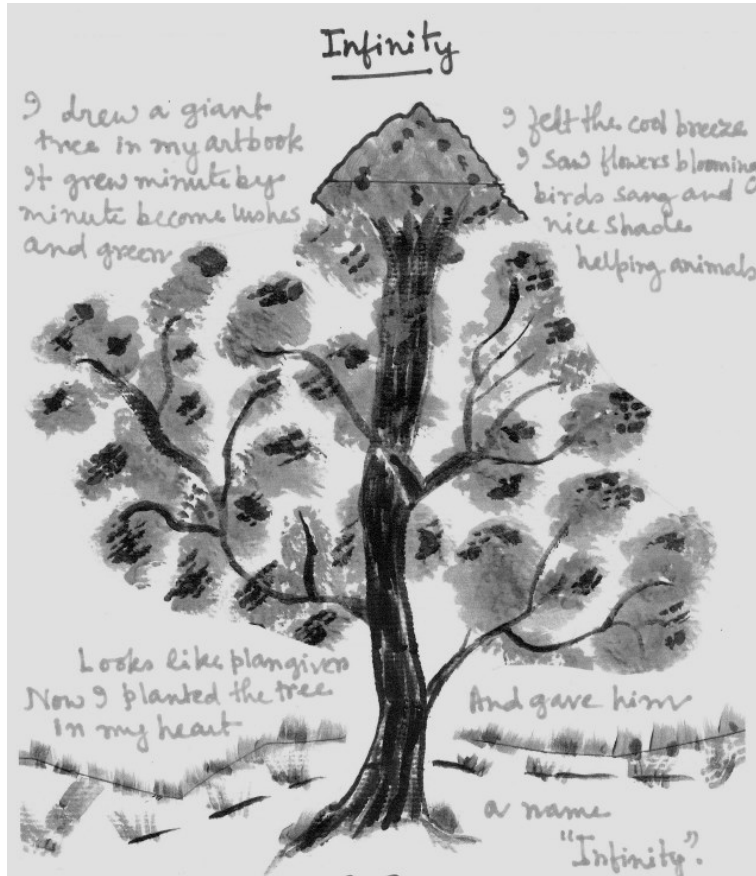 Infinity
I drew a giant
tree in my artbook
It grew minute by
minute become lushes
and green
I felt the cool breeze
I saw flowers blooming
birds sang and
nice shades
helping animals
Looks like plangivers
Now I planted the tree
In my heart
And gave him
a name
"Infinity".